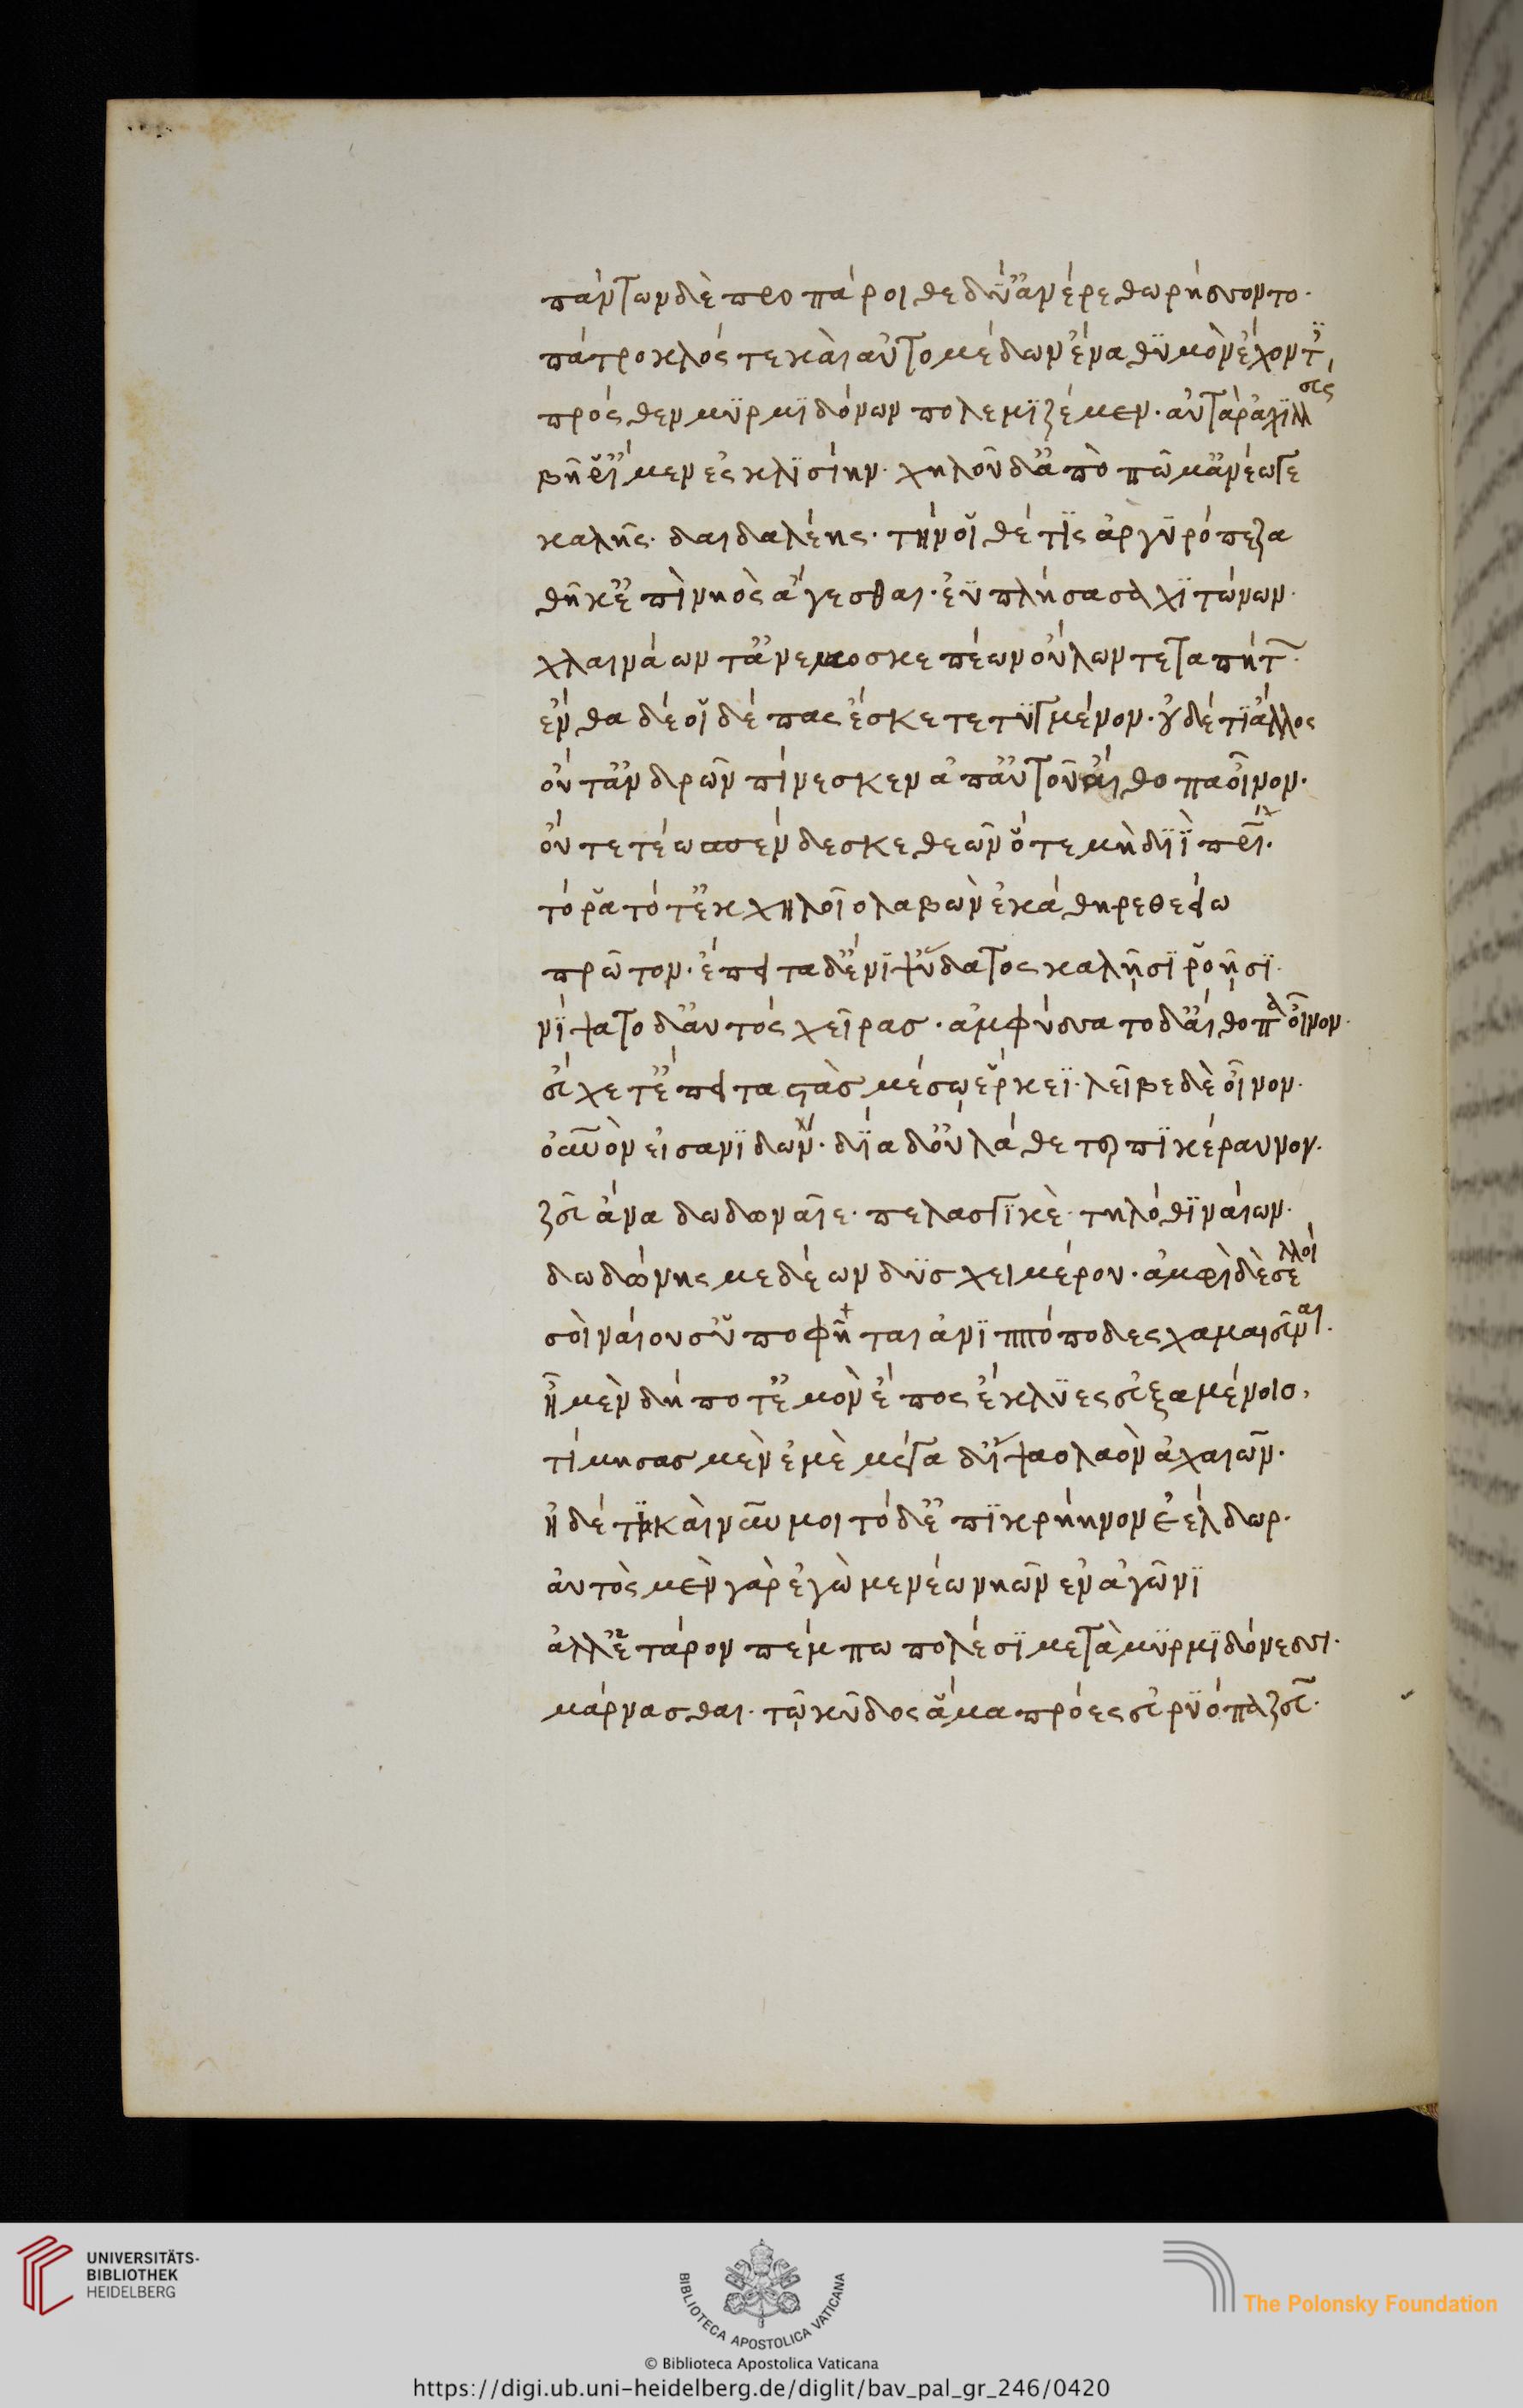 πάντων δὲ προπάροιθε δύ' ἀνέρε θωρήσσοντο·
πάτροκλός τε καὶ αὐτομέδων ἕνα θϋμὸν ἔχοντε
πρόσθεν μϋρμϊδόνων πολεμϊζέμεν· αὐτὰρ ἀχϊλλεύς
βῆ ῥ' ἴμεν ἐς κλϊσίην· χηλοῦ δ' ἀπὸ πῶμ' ἀνέωγε
καλῆς· δαιδαλέης· τήν οἱ θέτϊς ἀργϋρόπεζα
θῆκ' ἐπὶ νηὸς ἄγεσθαι· ἐϋπλήσασα χϊτώνων·
χλαινάων τ' ἀνεμοσκεπέων οὔλων τε ταπήτων·
ἔνθα δέ οἱ δέπας ἔσκε τετϋγμένον· οὐδέ τϊ ἄλλος
οὔτ' ἀνδρῶν πίνεσκεν ἀπ' αὐτοῦ αἴθοπα οἶνον·
οὔτέ τέω σπένδεσκε θεῶν ὅτε μὴ διῒ πατρί·
τό ῥα τότ' ἐκ χηλοῖο λαβὼν ἐκάθηρε θεείω
πρῶτον· ἔπειτα δ' ἔνϊψ' ὕδατος καλῇσϊ ῥοῇσϊ·
νίψατο δ' αὐτὸς χεῖρας· ἀφύσσατο δ' αἴθοπα οἶνον·
εὔχετ' ἔπειτα στὰς μέσῳ ἕρκεϊ· λεῖβε δὲ οἶνον·
οὐρανὸν εἰσανϊδών· δία δ' οὐ λάθε τερπϊκέραυνον·
ζεῦ ἄνα δωδωναῖε· πελασγϊκὲ· τηλόθϊ ναίων·
δωδώνης μεδέων δϋσχειμέρου· ἀμφὶ δὲ σελλοί
σοὶ ναίουσ' ὑποφῆται ἀνϊπτόποδες χαμαιεῦναι·
ἦ μὲν δή ποτ' ἐμὸν ἔπος ἔκλϋες εὐξαμένοιο,
τίμησας μὲν ἐμὲ μέγα δ' ἴψαο λαὸν ἀχαιῶν·
ἠδ' ἔτϊ καὶ νῦν μοι τόδ' ἐπϊκρήηνον ἐέλδωρ·
αὐτὸς μὲν γὰρ ἐγὼ μενέω νηῶν ἐν ἀγῶνϊ
ἀλλ' ἕταρον πέμπω πολέσϊ μετὰ μϋρμϊδόνεσσι·
μάρνασθαι· τῷ κῦδος ἅμα πρόες εὐρϋόπα ζεῦ·
UNIVERSITÄTS-
BIBLIOTHEK
HEIDELBERG
BIBLIOTECA APOSTOLICA VATICANA
The Polonsky Foundation
© Biblioteca Apostolica Vaticana
https://digi.ub.uni-heidelberg.de/diglit/bav_pal_gr_246/0420